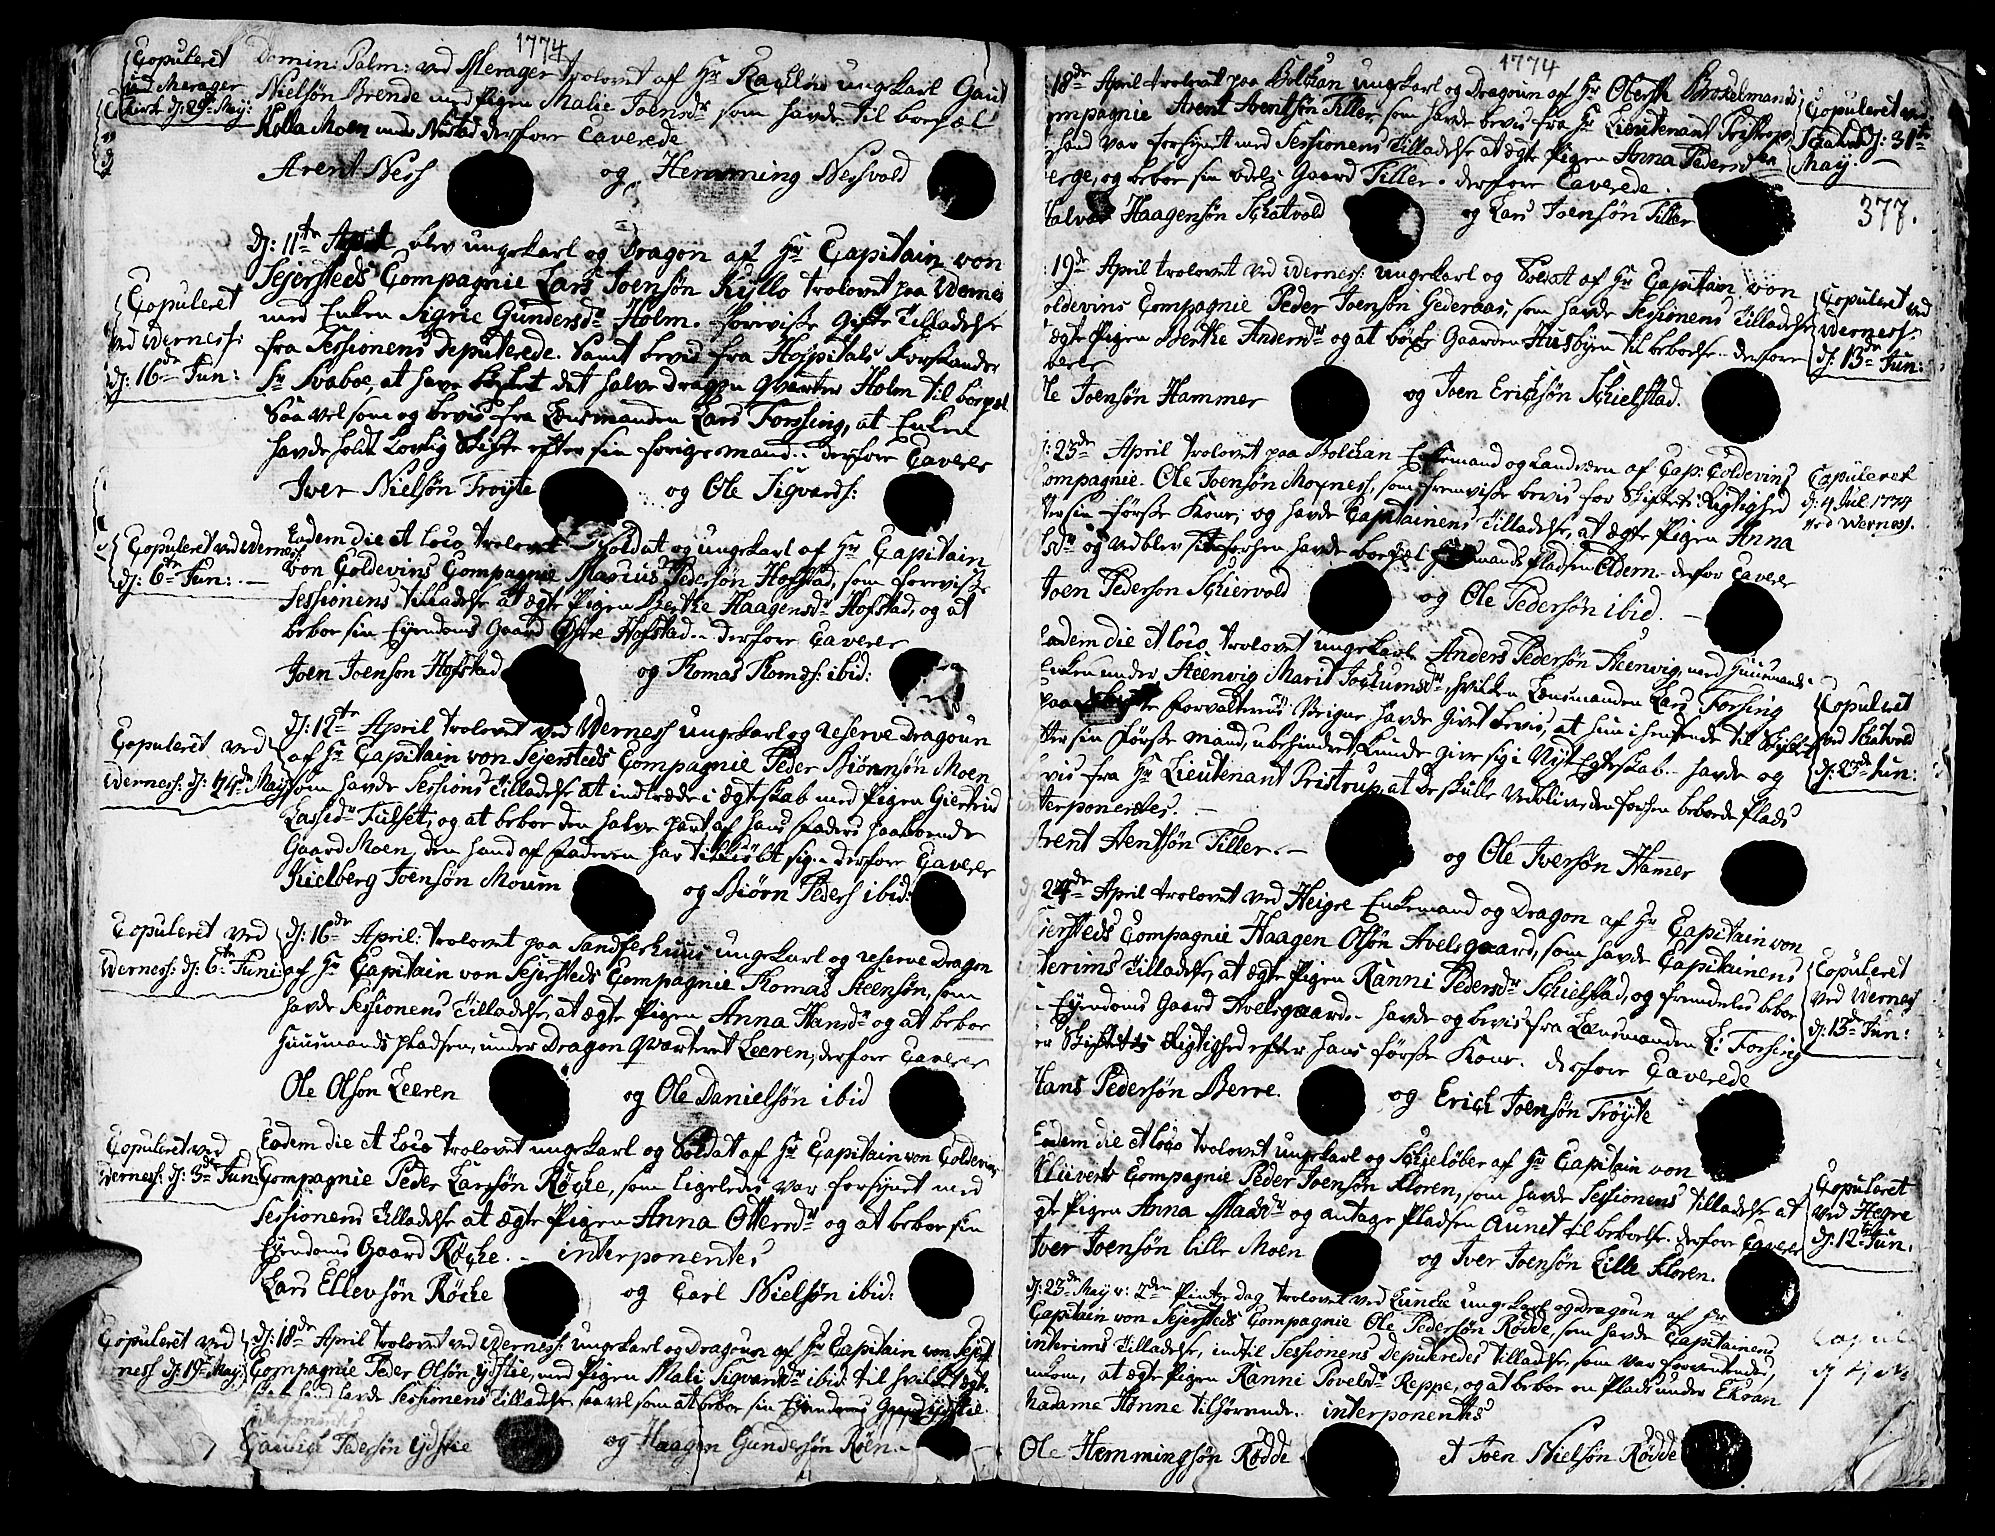 1774
Copuleret
ved Merager
Kirke dj: 29de May:
Domin: Palm: ved Merager trolovet af Hr ungkarl
Nielsøn Brende med Pigen Malie Joensdr som havde til boepæl
Moen derfore Caverede
Arent Ness og Hemming Nessvold
dj: 11te April blev ungkarl og Dragon af Hr Capitain von
Sejersteds Compagnie Lars Joensøn Kyllo trolovet paa Wernes
med Enken Sigrie Gundersdr Holm. foreviste Gifte Tilladelse
fra Sessionens Deputerede. Samt bevis fra Hospitals Forstander
Hr Svaboe, at have bøxlet det halve Dragon qvarteer Holm til boepæl
Saavel som og bevis fra Lensmanden Lars Forssing, at Enken
havde holdt Lovlig Skifte efter sin forige mand. derfore Caverer
Iver Nielsøn Trøyte og Ole Sigvards:
Copuleret
ved Werness:
dj: 16de Jun:
Eadem die et loco trolovet Soldat og ungkarl af Hr Capitain
von Coldevins Compagnie Marcus Pedersøn Hofstad, som foreviste
Sessionens Tilladelse at ægte Pigen Berthe Haagensdr Hofstad, og at
beboe sin Eyendoms Gaard Østre Hofstad. derfore Caverer
Joen Joensøn Hofstad og Thomas Thomæs: ibid:
Copuleret ved Werness
dj: 6te Jun:
dj: 12te April trolovet ved Werness ungkarl og reserve Dragoun
af Hr Capitain von Sejersteds Compagnie Peder Biørnsøn Moen
som havde Sessions Tilladelse at indtræde i ægteskab med Pigen Giertrud
Lassdr Fulset, og at beboe den halve part af hans Faders paaboende
Gaard Moen, den hand af Faderen har tilkiøbt sig. derfore Caverer
Kielberg Joensøn Moum og Biørn Peders ibid:
Copuleret ved
Werness: dj: 24de May
dj: 16de April: trolovet paa Sandferhuus ungkarl og reserve Dragon
af Hr Capitain von Sejersteds Compagnie Thomas Steensøn, som
havde Sessionens Tilladelse, at ægte Pigen Anna Hansdr og at beboe
Huusmands pladsen, under Dragon qvarteret Leeren, derfore Caverer
Ole Olsøn Leeren og Ole Danielsøn ibid
Copuleret ved
Werness: dj: 6te Juni:
Eadem die et loco trolovet ungkarl og Soldat af Hr Capitain von Coldevins
Compagnie Peder Larssøn Røcke, som ligeledes var forsynet med
Sessionens Tilladelse at ægte Pigen Anna Ottersdr og at beboe sin
Eyendoms Gaard Røcke. interponentes
Lars Ellevsøn Røcke og Carl Nielsøn ibid:
Copuleret ved
Werness: dj: 3de Jun:
dj: 18de April trolovet ved Werness: ungkarl og Dragoun af Hr Capitain von Sejst
Compagnie Peder Olsøn Ydstie, med Pigen Mali Sigvardsdr ibid til hvilket ægte
skab hand havde Sessionens Tilladelse saavel som at beboe sin Eyendoms Gaard Ydstie
Pedersøn Ydstie og Haagen Gundersøn Røen
Copuleret ved
ness dj: 19de May:
1774
377.
18de April trolovet paa Bolckan ungkarl og Dragoun af Hr Oberst Brokelmands
ompagnie Arent Arentsøn Tiller som havde bevis fra Hr Lieutenant Pristrop
hand var forsynet med Sessionens Tilladelse at ægte Pigen Anna Pedersdr
erge, og beboe sin odels Gaard Tiller. derfore Caverede.
Halvor Haagensøn Schatvold og Lars Joensøn Tiller
Copuleret ved
Schatvold dj: 31te
May:
19de April trolovet ved Werness: ungkarl og Soldat af Hr Capitain von
oldevins Compagnie Peder Joensøn Gederaas, som havde Sessionens Tilladelse
ægte Pigen Berthe Andersdr og at bøxle Gaarden Husbyen til beboelse. derfore
Ole Joensøn Hammer og Joen Erichsøn Schielstad.
Copuleret ved
Werness:
dj: 13de Jun:
23de April trolovet paa Bolckan Enkemand og Landværn af Cap: Coldevins
ompagnie. Ole Joensøn Moxness, som fremviste bevis for Skiftets Rigtighed
efter sin første Kone, og havde Capitainens Tilladelse, at ægte Pigen Anna
sdr og vedblev sit forhen havde boepæl Huusmands Pladsen Eldern. derfor Caverer
Joen Pedersøn Schiervold og Ole Pedersøn ibid.
Copuleret
dj: 4 Jul. 1774
ved Werness.
Eadem die et loco trolovet ungkarl Anders Pedersøn Steenvig, med Huusmands
Enken under Steenvig Marit Jochumsdr, hvilken Lensmanden Lars Forsing
paa Forvalterens Vegne havde givet bevis, at hun i henseende til Skifte
efter sin første mand, ubehindret kunde give sig i Nyt Egteskab. havde og
bevis fra Hr Lieutenant Pristrup, at De skulle vedblive den forhen beboede Plads
interponentes.
Arent Arentsøn Tiller. og Ole Iversøn Hamer
Copulret
ved Schatvold
dj: 23de Jun:
24de April trolovet ved Heigre Enkemand og Dragon af Hr Capitain von
Sejersteds Compagnie Haagen Olsøn Avelsgaard, som havde Capitainens
interims Tilladelse, at ægte Pigen Ranni Pedersdr Schielstad, og fremdeles beboe
Eyendoms Gaard Avelsgaard. havde og bevis fra Lensmanden L: Forsing
Skiftets Rigtighed efter hans første Kone. derfore Caverede
Hans Pedersøn Berre. og Erich Joensøn Trøyte
Copuleret
ved Werness
dj: 13de Jun:
Eadem die et loco trolovet ungkarl og Schieløber af Hr Capitain von
Klüverts Compagnie Peder Joensøn Kloren, som havde Sessionens Tilladelse at
ægte Pigen Anna Madsdr og antage Pladsen Aunet til beboelse. derfore Caverer
Iver Joensøn Lille Moen og Iver Joensøn Lille Kloren.
Copuleret
ved Hegre
dj: 12te Jun.
dj: 23de May v: 2den Pintze dag trolovet ved Luncke ungkarl og dragoun af Hr
Capitain von Sejersteds Compagnie Ole Pedersøn Rødde, som havde Capitainens
interims Tilladelse, indtil Sessionens Deputeredes tilladelse, som var forventendes,
inkom, at ægte Pigen Ranni Povelsdr Reppe, og at beboe en Plads under Ekran
Madame Hønne tilhørende. interponentes
Ole Hemmingsøn Rødde et Joen Nielsøn Rødde